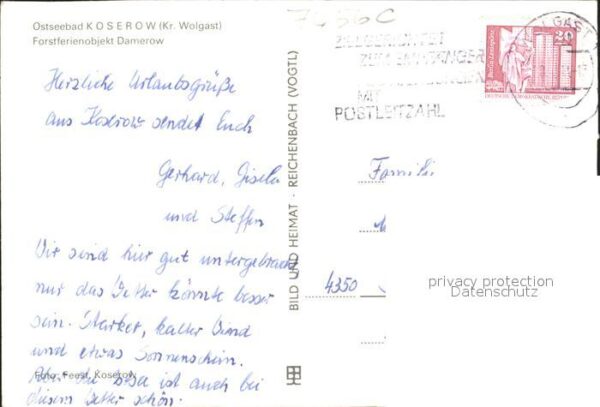 Ostseebad KOSEROW (Kr. Wolgast)
Forstferienobjekt Damerow
Herzliche Urlaubsgrüße
aus Koserow sendet Euch
Gerhard, Gisela
und Steffen
Wir sind hier gut untergebracht
nur das Wetter könnte besser
sein. Starker, kalter Wind
und etwas Sonnenschein.
Aber die See ist auch bei
diesem Wetter schön.
Foto: Feest, Koserow
BILD UND HEIMAT · REICHENBACH (VOGTL)
ZIELGERICHTET
ZUM EMPFÄNGER
MIT
POSTLEITZAHL
WOLGAST 1
20
Familie
4350
privacy protection
Datenschutz